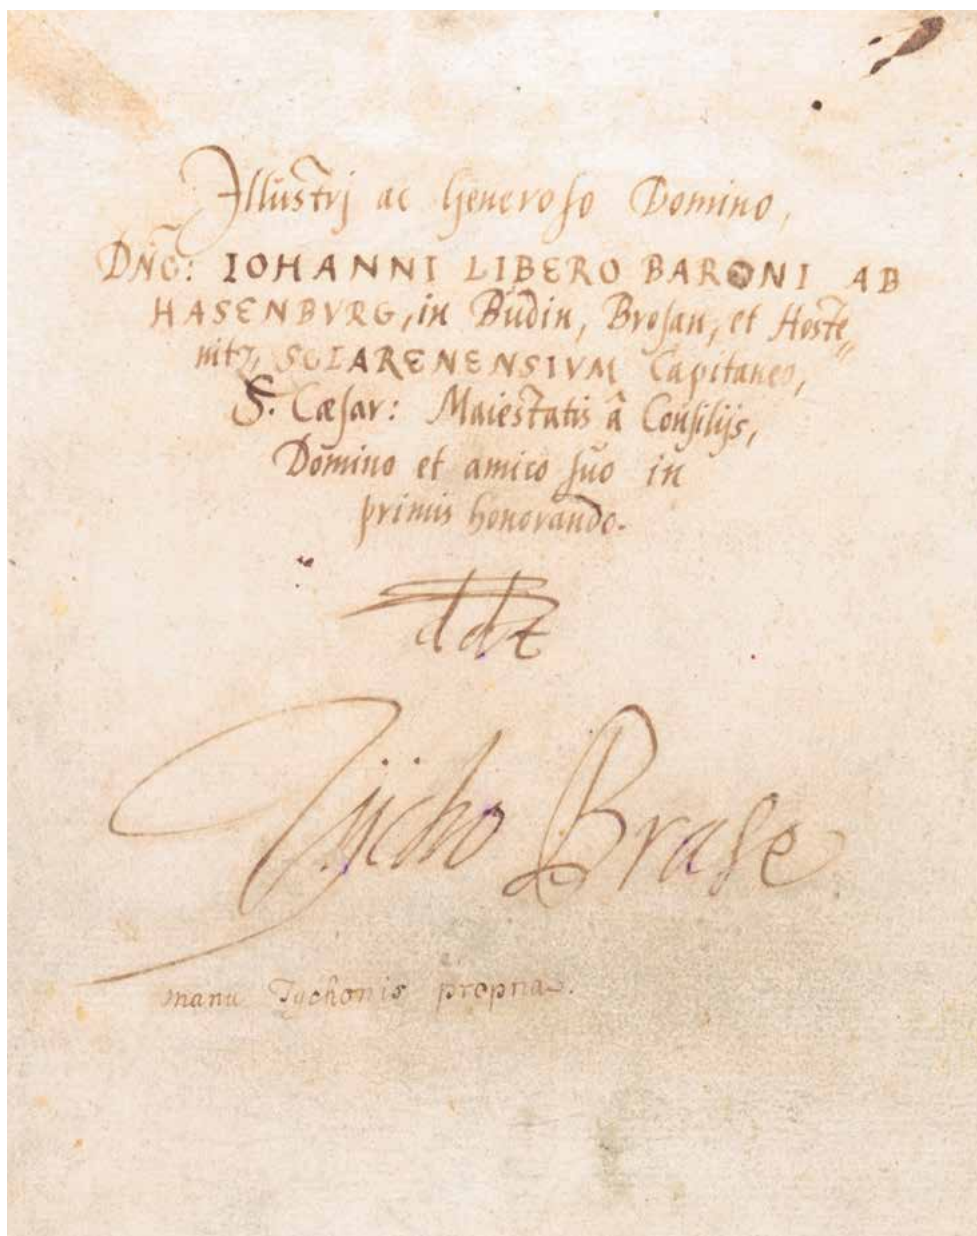 Illustrj ac Generoso Domino,
DÑO: IOHANNI LIBERO BARONI AB
HASENBVRG, in Budin, Brosan, et Hoste„
nitz, SCLARENENSIVM Capitaneo,
S. Cæsar: Maiestatis â Consilijs,
Domino et amico suo in
primis honorando.
ddt
Tÿcho Brahe
manu Tychonis propria.